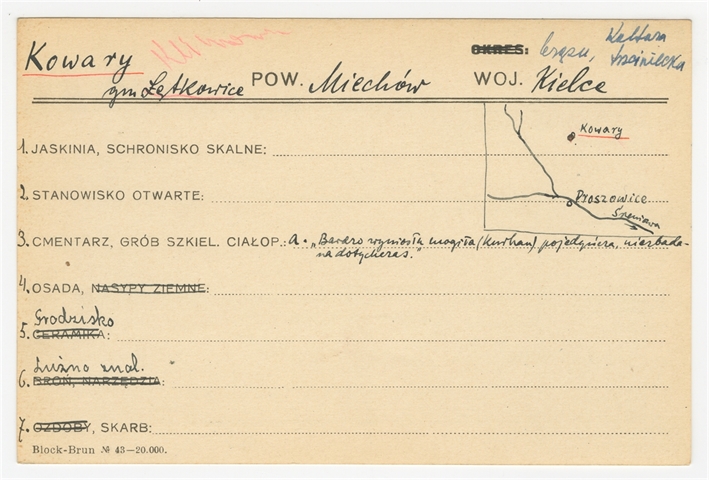 Kowary
OKRES: brązu, Kultura
trzciniecka
gm Łętkowice POW. Miechów WOJ. Kielce
Kowary
1. JASKINIA, SCHRONISKO SKALNE:
2. STANOWISKO OTWARTE:
Proszowice
Śreniawa
3. CMENTARZ, GRÓB SZKIEL. CIAŁOP.: a. „Bardzo wyniosła mogiła (Kurhan) pojedyńcza, niezbada-
na dotychczas."
4. OSADA, NASYPY ZIEMNE:
Grodzisko
5. CERAMIKA:
Luźno znal.
6. BROŃ, NARZĘDZIA:
7. OZDOBY, SKARB:
Block-Brun № 43—20.000.